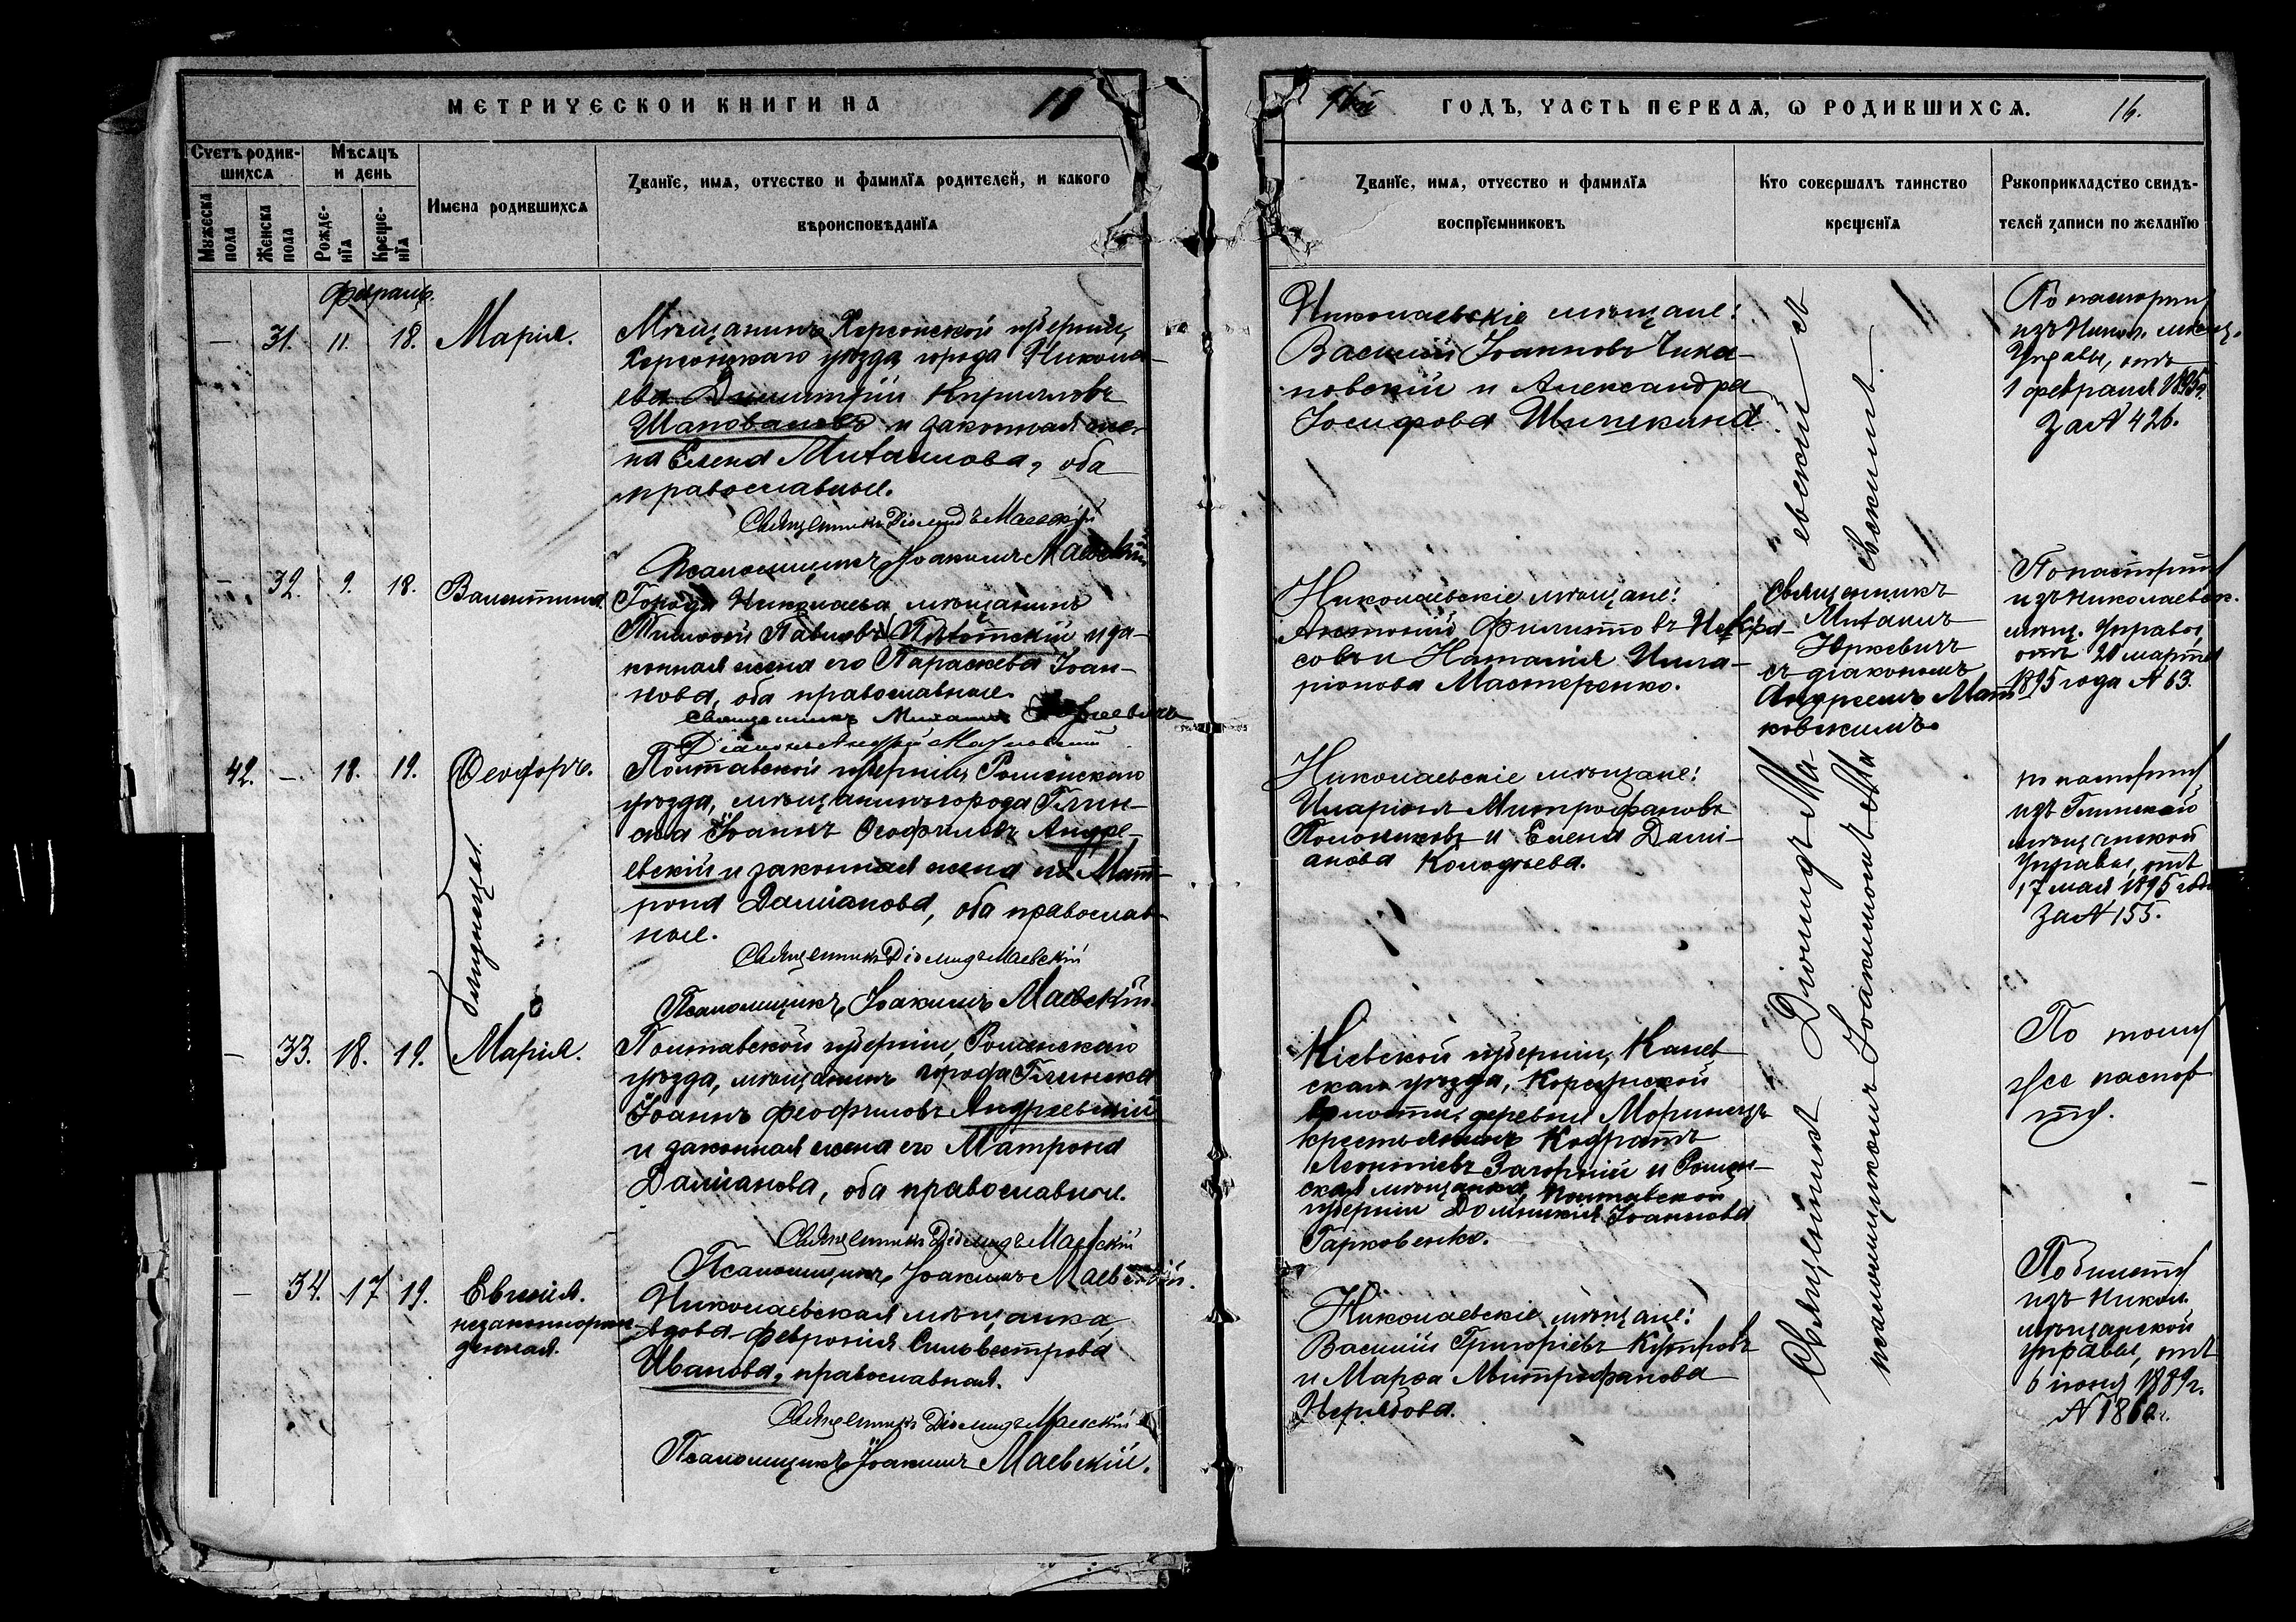 МЕТРИЧЕСКОЙ КНИГИ НА 18
96й ГОДЪ, ЧАСТЬ ПЕРВАЯ, Ѡ РОДИВШИХСЯ. 16.
Счетъ родив-
шихся
Мужеска
пола
Женска
пола
Мѣсяцъ
и день
Рожде-
нія
Креще-
нія
Имена родившихся
Званіе, имя, отчество и фамилія родителей, и какого
вѣроисповѣданія
Званіе, имя, отчество и фамилія
воспріемниковъ
Кто совершалъ таинство
крещенія
Рукоприкладство свидѣ-
телей записи по желанію
Февраль.
— 31. 11. 18. Марія.
Мѣщанинъ Херсонской губерніи,
Херсонскаго уѣзда, города Никола-
ева Димитрій Кирилловъ
Шаповаловъ и законная же-
на Елена Михаилова, оба
православные.
Священникъ Діомидъ Маевскій
Псаломщикъ Іоакимъ Маевскій
Николаевскіе мѣщане:
Василій Іоанновъ Чика-
новскій и Александра
Іосифова Шичекина.
По паспорту
изъ Никол. мѣщ.
Управы, отъ
1 февраля 1895 г.
За № 426.
— 32. 9. 18. Валентина.
Города Николаева мѣщанинъ
Тимофей Павловъ Пѣхотскій и за-
конная жена его Параскева Іоан-
нова, оба православные.
Священникъ Михаилъ Юркевичъ
Діаконъ Андрей
Николаевскіе мѣщане:
Антоній Филипповъ Некра-
совъ и Наталія Илла-
ріонова Мастеренко.
Священникъ
Михаилъ
Юркевичъ
съ діакономъ
Андреемъ Мат-
ковскимъ.
По паспорту
изъ Николаевск.
мѣщ. Управы,
отъ 20 марта
1895 года № 63.
42. — 18. 19. Ѳеодоръ.
близнецы.
Полтавской губерніи, Роменскаго
уѣзда, мѣщанинъ города Глин-
ска Іоаннъ Ѳеофиловъ Андре-
евскій и законная жена его Мат-
рона Даміанова, оба православ-
ные.
Священникъ Діомидъ Маевскій
Псаломщикъ Іоакимъ Маевскій.
Николаевскіе мѣщане:
Иларіонъ Митрофановъ
Полониковъ и Елена Дамі-
анова Колодѣева.
по паспорту
изъ Глинской
мѣщанской
Управы, отъ
17 мая 1895 года
За № 155.
— 33. 18. 19. Марія.
Полтавской губерніи, Роменскаго
уѣзда, мѣщанинъ города Глинска
Іоаннъ Феофиловъ Андреевскій
и законная жена его Матрона
Даміанова, оба православные.
Священникъ Діомидъ Маевскій
Псаломщикъ Іоакимъ Маевскій.
Кіевской губерніи, Канев-
скаго уѣзда, Корсунской
волости, деревни Моринецъ
крестьянинъ Кодратъ
Леонтіевъ Загорній и Ромен-
ская мѣщанка, Полтавской
губерніи Домникія Іоаннова
Гарковенко.
По тому
же паспор-
ту.
— 34. 17 19. Евгенія.
незаконнорож-
денная.
Николаевская мѣщанка,
вдова Февронія Сильвестрова
Иванова, православная.
Священникъ Діомидъ Маевскій
Псаломщикъ Іоакимъ Маевскій.
Николаевскіе мѣщане:
Василій Григоріевъ
и Марѳа Митрофанова
По билету
изъ Никол.
мѣщанской
управы, отъ
6 іюня 1889 г.
Священникъ Діомидъ Ма-
евскій съ
псаломщикомъ Іоакимомъ Ма-
евскимъ.